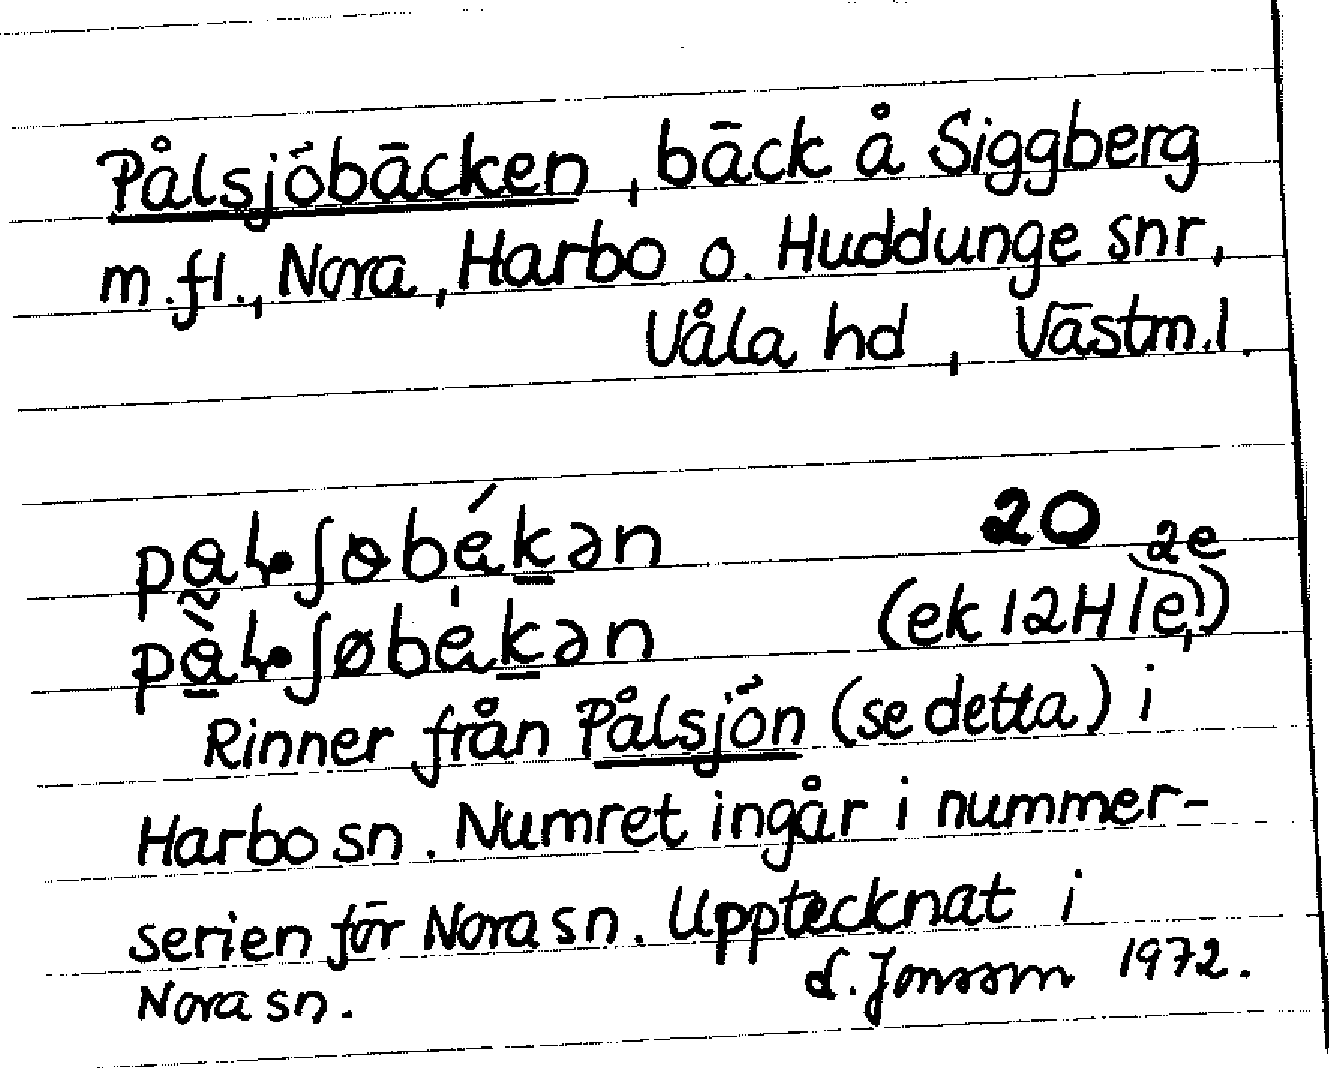 Pålsjöbäcken, bäck å Siggberg
m.fl., Nora, Harbo o. Huddunge snr,
Våla hd, Västm.l.
20
2e
(ek 12H 1e,)
Rinner från Pålsjön (se detta) i
Harbo sn. Numret ingår i nummer-
serien för Nora sn. Upptecknat i
Nora sn. L. Jonsson 1972.